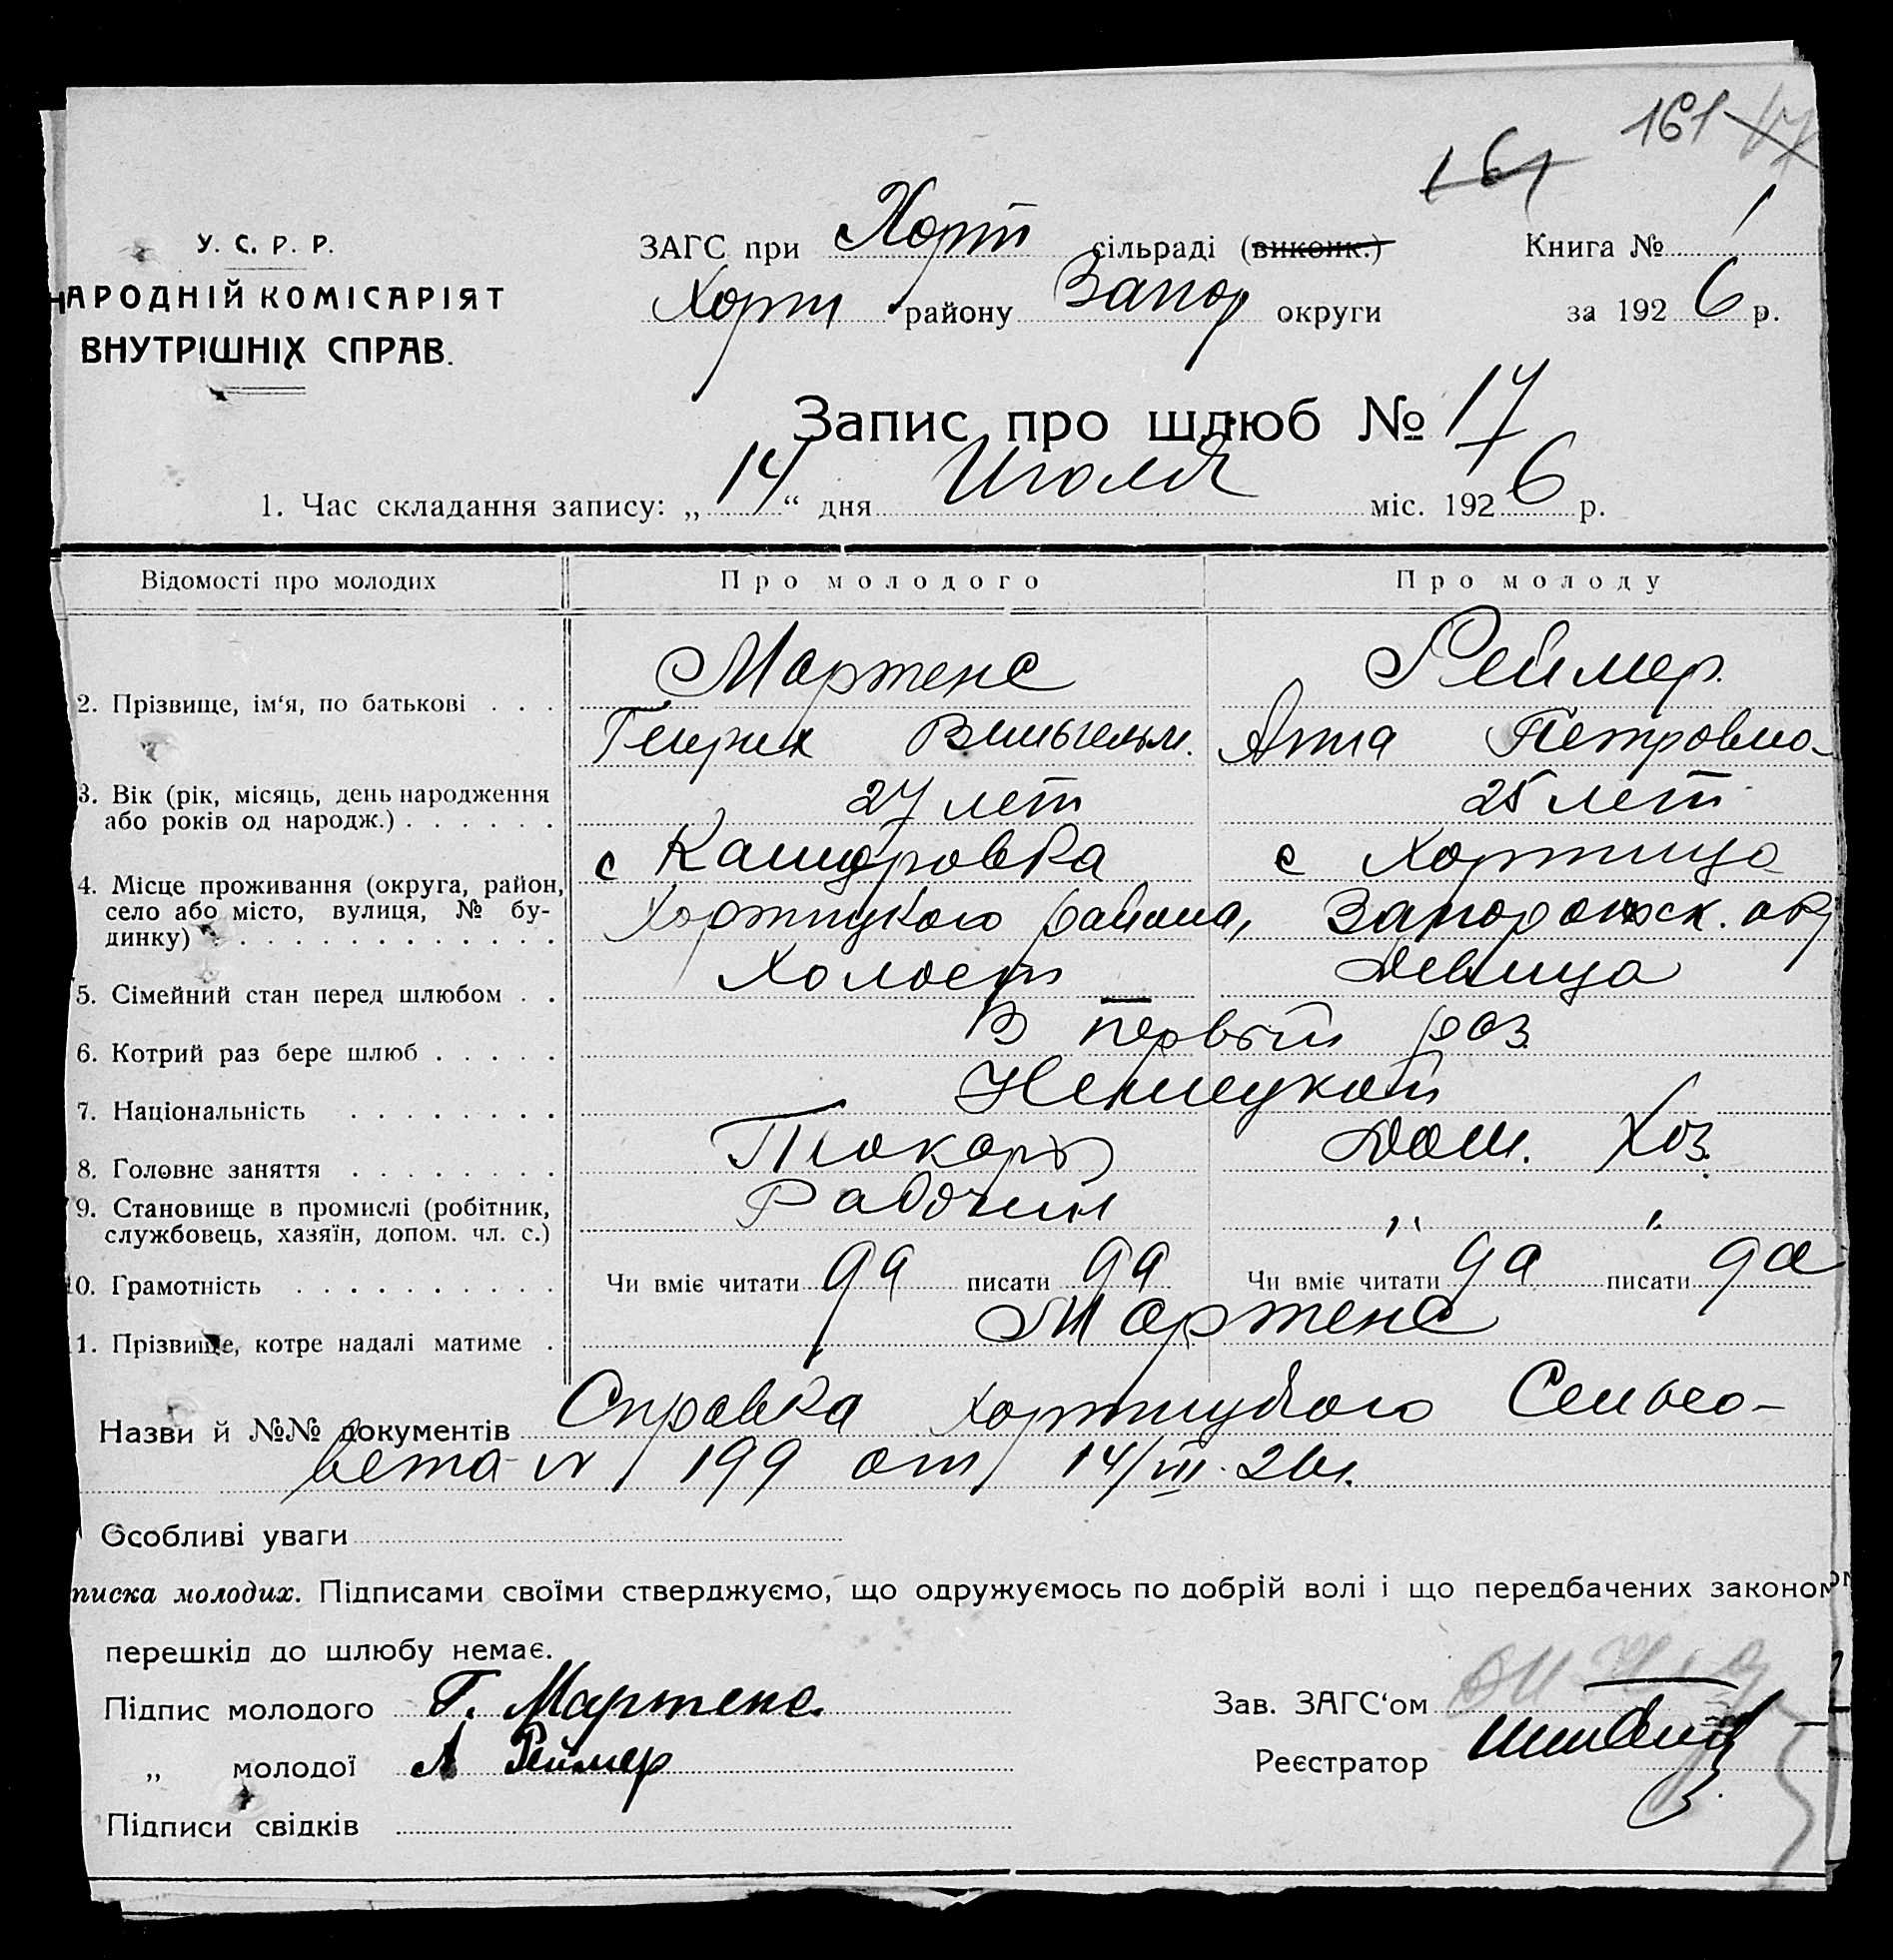 161 17
161
У. С. Р. Р.
НАРОДНІЙ КОМІСАРІЯТ
ВНУТРІШНІХ СПРАВ.
ЗАГС при Хорт сільраді (виконк.) Книга № 1
Хорт району Запор округи за 1926 р.
Запис про шлюб № 17
1. Час складання запису: „14“ дня Июля міс. 1926 р.
Відомості про молодих Про молодого Про молоду
Мартенс Реймер.
2. Прізвище, ім‘я, по батькові . . .
Генрих Вильгельм. Анна Петровна
3. Вік (рік, місяць, день народження 27 лет 25 лет
або років од народж.) . . . . . .
с Кампровка с Хортица
4. Місце проживання (округа, район,
село або місто, вулиця, № бу- Хортицкого района, Запорожск. окр
динку) . . . . . . . . . . . . .
5. Сімейний стан перед шлюбом . . Холост Девица
6. Котрий раз бере шлюб . . . . . В первый раз
7. Національність . . . . . . . . Немецкой
8. Головне заняття . . . . . . . . Токарь Дом. Хоз.
9. Становище в промислі (робітник, Рабочий „ „
службовець, хазяїн, допом. чл. с.)
10. Грамотність . . . . . . . . . . Чи вміє читати да писати да Чи вміє читати да писати да
1. Прізвище, котре надалі матиме . Мартенс
Назви й №№ документів Справка Хортицкого Сельсо-
вета N 199 от 14/VII. 26г.
Особливі уваги
писка молодих. Підписами своїми стверджуємо, що одружуємось по добрій волі і що передбачених законом
перешкід до шлюбу немає.
Підпис молодого Г. Мартенс. Зав. ЗАГС‘ом
„ молодої А Реймер Реєстратор
Підписи свідків